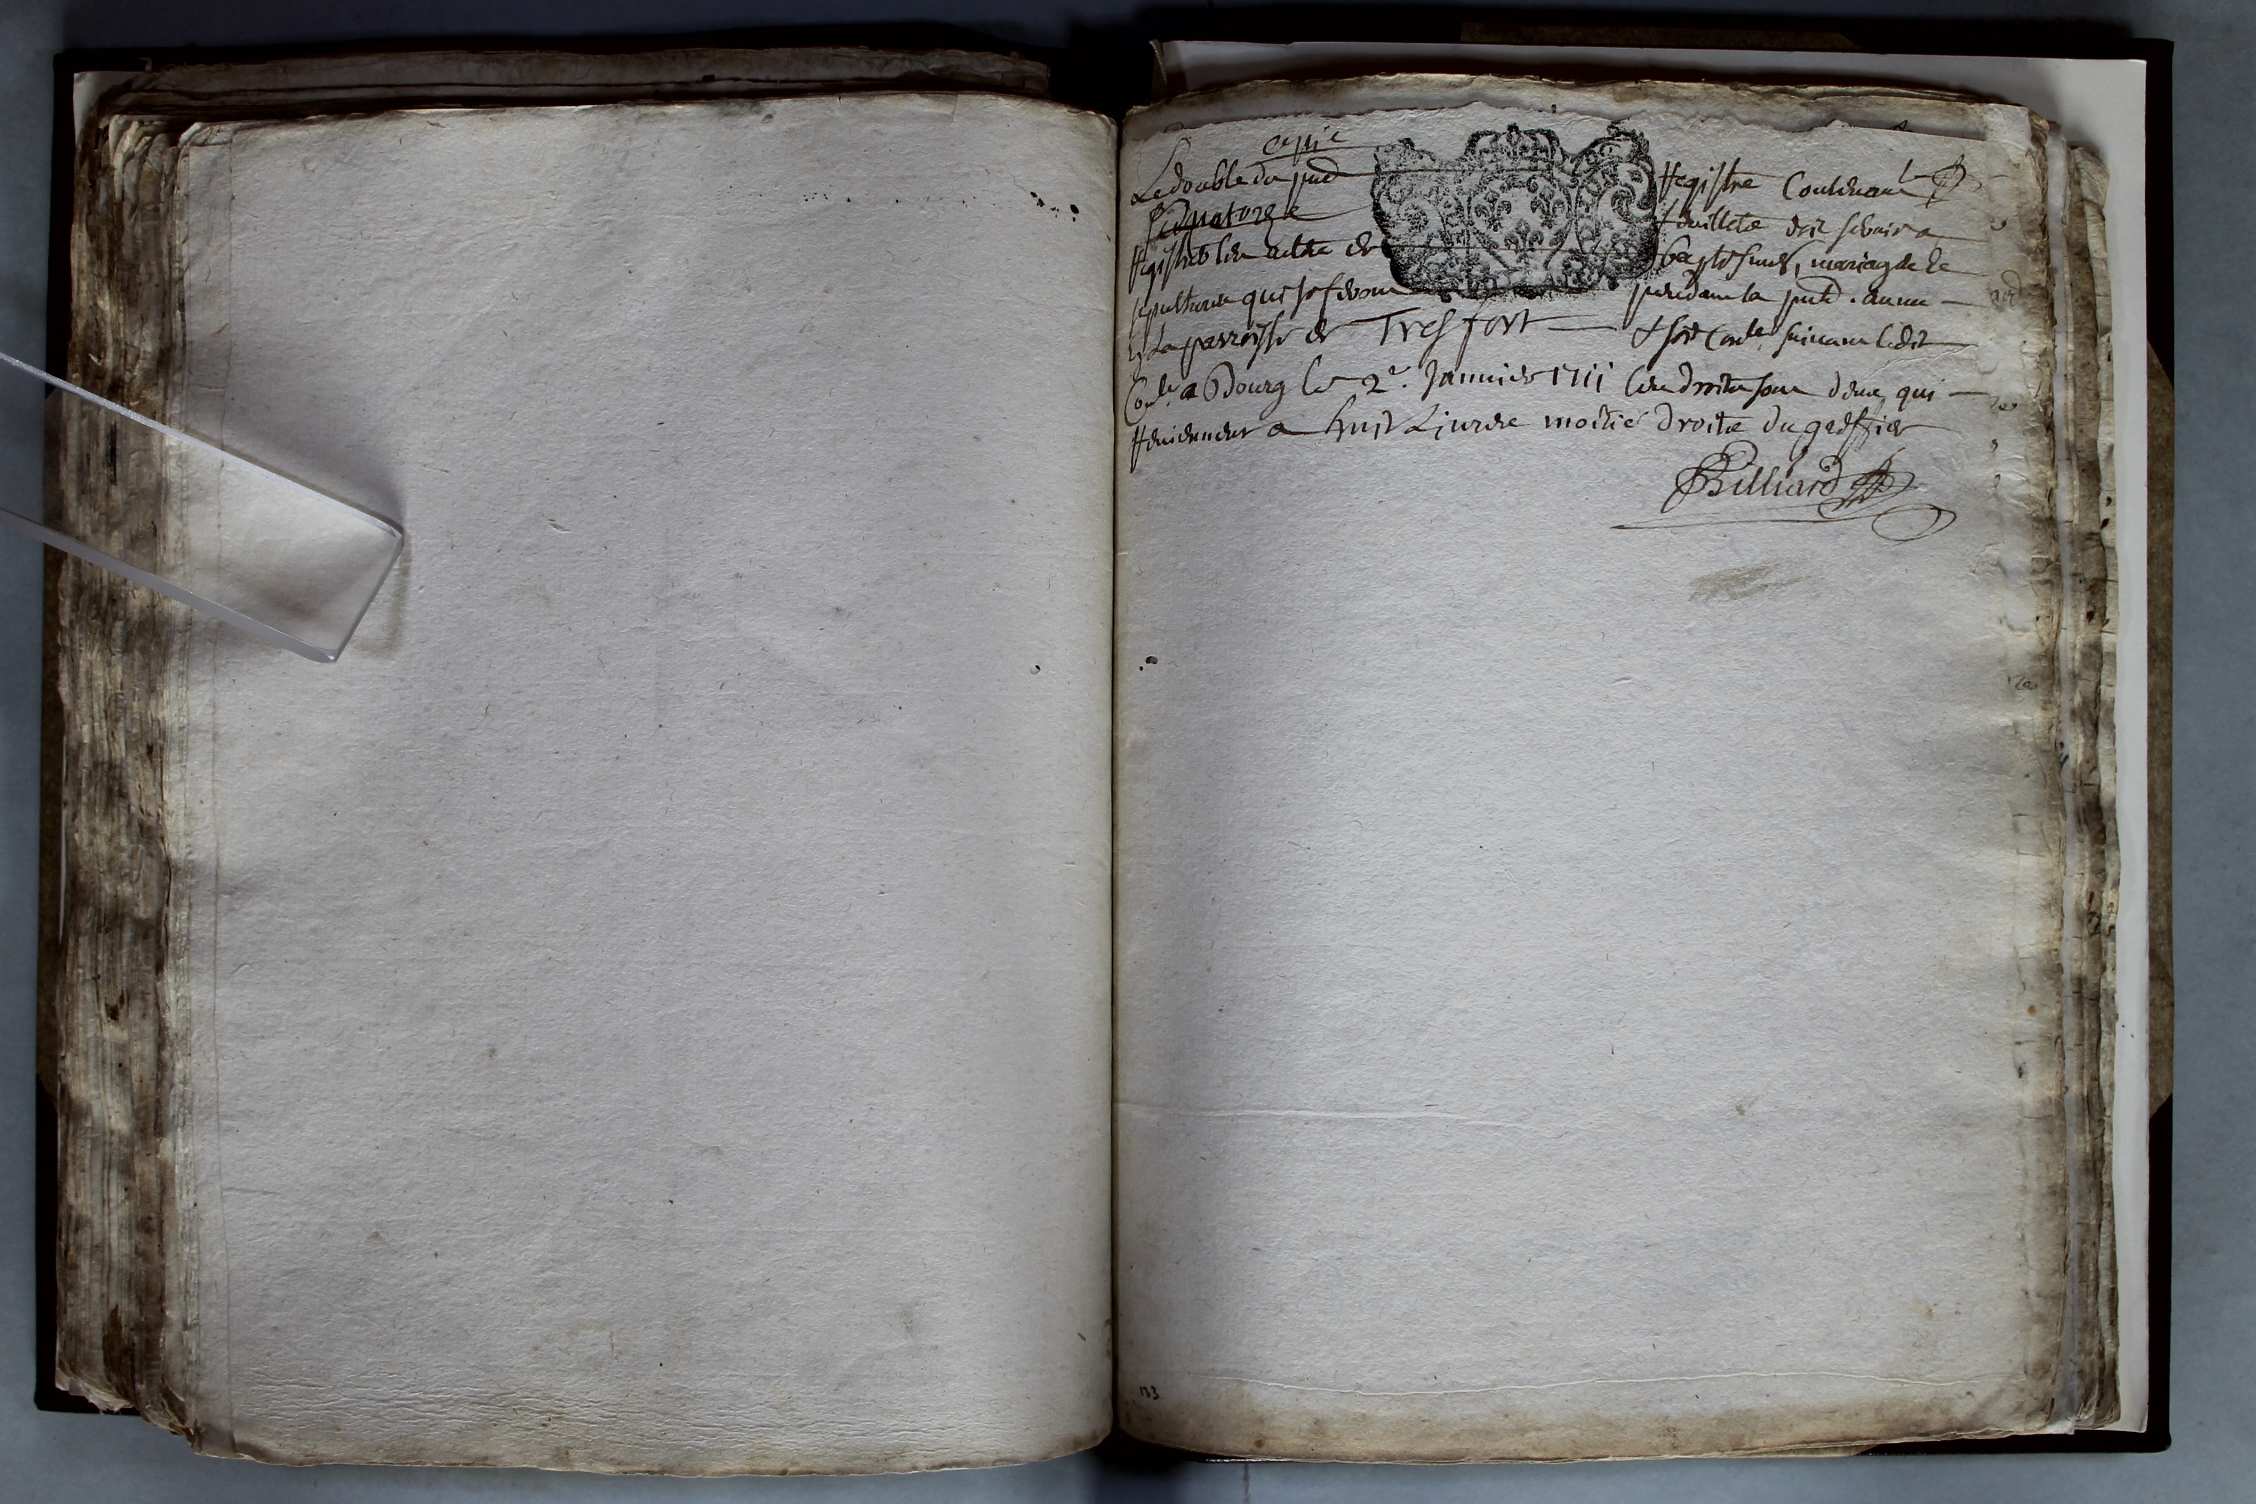 copie
Le double du pnt Registre Contenant
quatorze feuillets doit servir a
Registrer les actes de baptesmes, mariages et
sepultures qui se feront pendant la pnte annee
En La parroisse de Tresfort Et sera Conlé suivant ledit
Conlé a Bourg le 2e. Janvier 1711 les droits sont deus qui
Reviennent a huit Livres moitié droits du greffier
Billiard
133